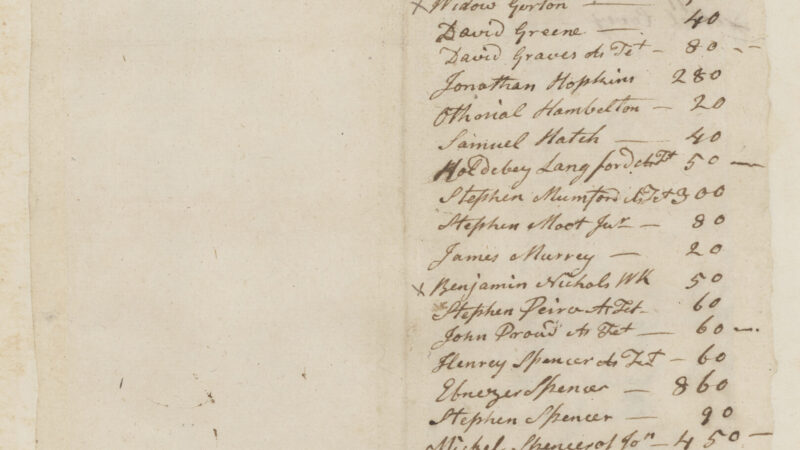 x Widow Gorton —
David Greene — 40
David Graves As Tet — 80 - -
Jonathan Hopkins 280
Othorial Hambelton — 20
Samuel Hatch — 40
Holdebey Langford As Tt 50 —
Stephen Mumford As Tet 300
Stephen Moot Jur — 80
James Murrey — 20
x Benjamin Nichols WK 50
Stephen Peirce As Tet 60
John Proud As Tet — 60 —
Henrey Spencer As Tet — 60
Ebnezer Spencer — 860
Stephen Spencer — 90
Michel Spencer of Jon — 450 —